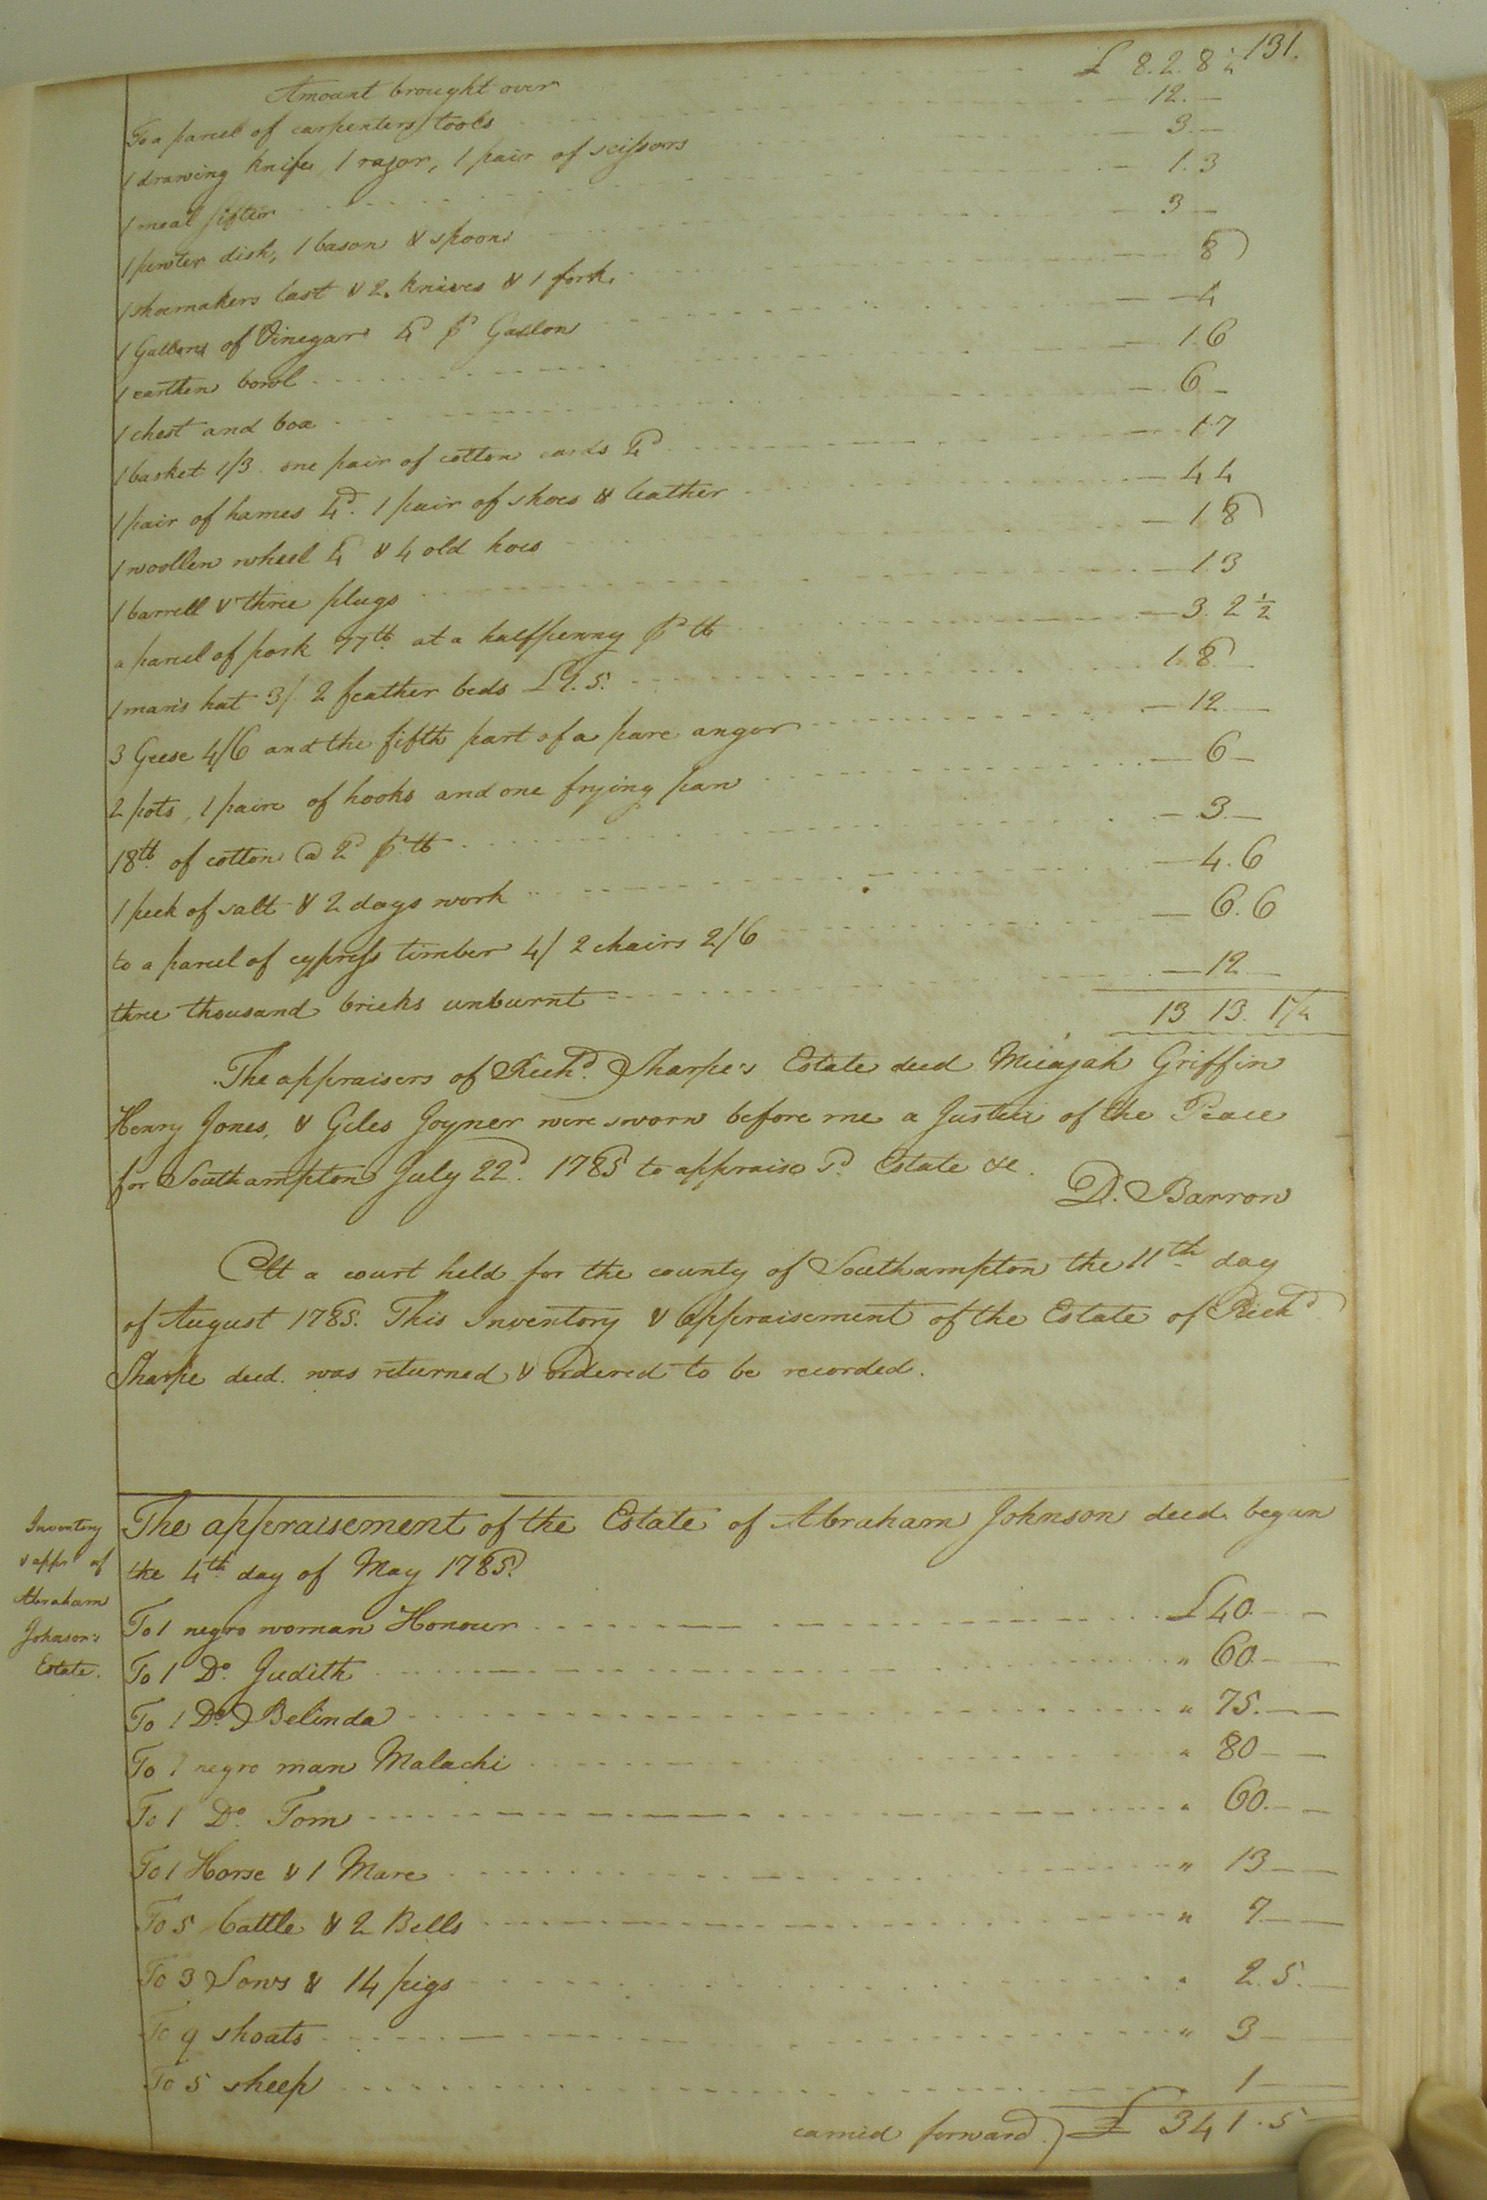 131.
Amount brought over £ 8. 2. 8 1/4
To a parcel of carpenters tools 12. —
1 drawing knife, 1 razor, 1 pair of scissors 3. —
1 meal sifter 1. 3
1 pewter dish, 1 bason & spoons 3 —
1 shoemakers last & 2 knives & 1 fork 8
1 Gallons of Vinegar 4d pr Gallon 4
1 earthen bowl 1. 6
1 chest and box 6 —
1 basket 1/3 one pair of cotton cards 4d 1 7
1 pair of hames 4d. 1 pair of shoes & leather 4 4
1 woollen wheel & 4 old hoes 1 8
1 barrell & three plugs 1. 3
a parcel of pork 77lb at a halfpenny pr lb 3. 2 1/2
1 man's hat 3/ 2 feather beds £1. 5. 1. 8 —
3 Geese 4/6 and the fifth part of a pare auger 12 —
2 pots, 1 pair of hooks and one frying pan 6 —
18lb. of cotton @ 2d pr lb 3. —
1 peck of salt & 2 days work 4. 6
to a parcel of cypress timber 4/ 2 chairs 2/6 6. 6
three thousand bricks unburnt 12 —
13 13. 1 1/4
The appraisers of Richd. Sharpe's Estate decd Micajah Griffin
Henry Jones, & Giles Joyner were sworn before me a Justice of the Peace
for Southampton July 22d. 1785 to appraise sd. Estate &c.
D. Barron
At a court held for the county of Southampton the 11th day
of August 1785. This Inventory & appraisement of the Estate of Richd
Sharpe decd. was returned & ordered to be recorded.
Inventory
& appt of
Abraham
Johnson's
Estate.
The appraisement of the Estate of Abraham Johnson decd. began
the 4th day of May 1785.
To 1 negro woman Honour £ 40. — —
To 1 Do. Judith " 60. — —
To 1 Do. Belinda " 75. — —
To 1 negro man Malachi " 80 — —
To 1 Do. Tom " 60. — —
To 1 Horse & 1 Mare " 13 — —
To 5 Cattle & 2 Bells " 7 — —
To 3 Sows & 14 pigs " 2. 5. —
To 9 shoats " 3 —
To 5 sheep 1 —
carried forward) £ 341. 5